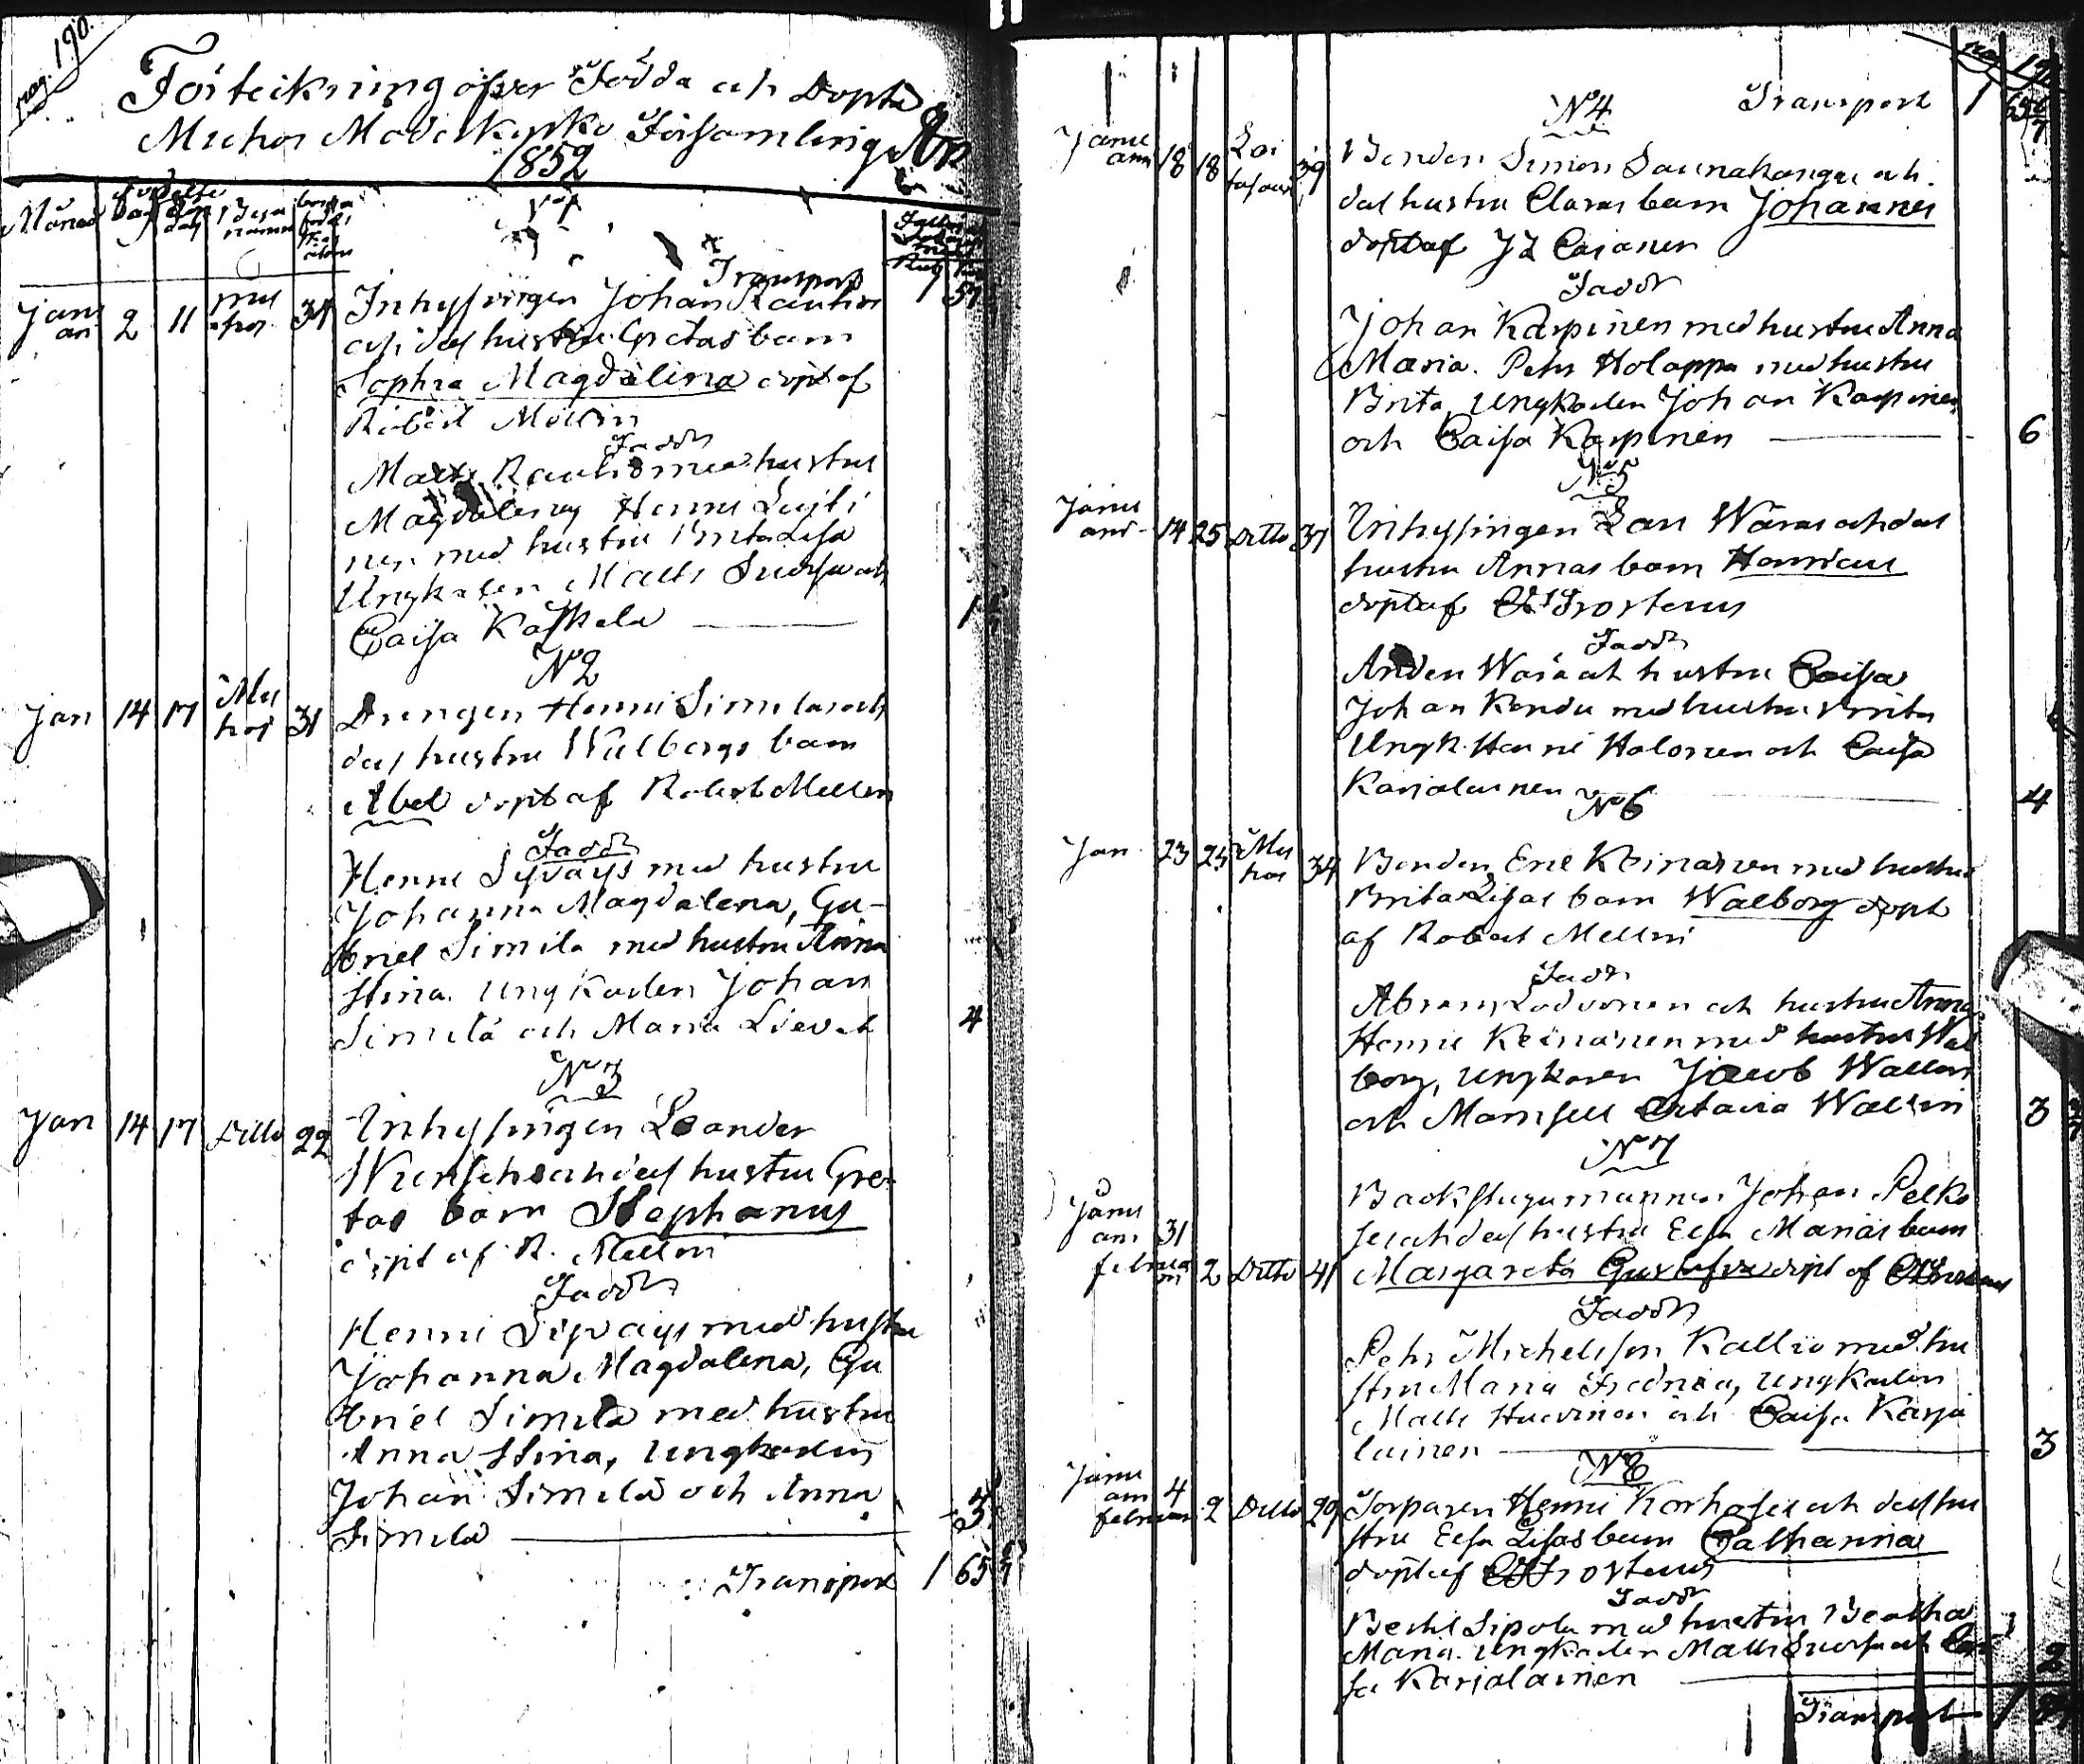 pag. 190.
Förteckning öfver Födda och Döpta
Muhos Moderkyrko Församling År
1852
Månad
Transport 1
Januari 2 11 Muhos 37 Inhysingen Johan Rauhio
och des hustru Gretas barn
Sophia Magdalena döpt af
Robert Mellin
Faddr
Matts Rauhio med hustru
Magdalena, Henric
nen med hustru Brita Lisa
Ungkarlen Matts Suorsa och
Caisa Kaskela
N 2
Jan 14 17 Muhos 31 Drengen Henric Similas och
des hustru Walborgs barn
Abel döpt af Robert Mellin
Faddr
Henric Sipväys med hustru
Johanna Magdalena, Ga-
briel Similä med hustru Anna
Stina. Ungkarlen Johan
Similä och Maria 4
N 3
Jan 14 17 Ditto 22 Inhysingen Leander
och des hustru Gre-
tas barn Stephanus
döpt af R. Mellin
Faddr
Henric Sipväys med hustru
Johanna Magdalena, Ga
briel Similä med hustru
Anna Stina, Ungkarlen
Johan Similä och Anna
Similä
Transport 1 65
pag
N 4 Transport 1
Januari 18 18 39 Bonden Simon Saunakangas och
des hustru Claras barn Johannes
döpt af Cajaner
Faddr
Johan Karpinen med hustru Anna
Maria. Pehr Holappa med hustru
Brita, Ungkarlen Johan Karpinen
och Caisa Karpinen 6
N 5
Januari 14 25 Ditto 37 Inhysingen Lars Waras och des
hustru Annas barn Henricus
döpt af Frosterus
Faddr
Anders Wara och hustru Caisa
Johan Kondu med hustru Brita
Ungk. Henric Halonen och Caisa
Karjalainen 4
N 6
Jan 23 25 Muhos 34 Bonden Eric Keinänen med hustru
Brita Lisas barn Walborg döpt
af Robert Mellin
Faddr
Abram och hustru Anna
Henric Keinänen med hustru Wal
borg, Ungkaren Jacob Wallin
och Mamsell Octavia Wallin 3
N 7
Januari 31
februari 2 Ditto 41 Backstugumannen Johan Pelko
se och des hustru Elsa Marias barn
Margareta Gustafva döpt af
Faddr
Pehr Michelsson Kallio med hu
stru Maria Fredrica, Ungkarlen
Matts Huovinen och Caisa Karja
lainen 3
N 8
Januari 4
februari 2 Ditto 29 Torparen Henric Korhose och des hu
stru Elsa Lisas barn Catharina
döpt af Frosterus
Faddr
Bertil Sipola med hustru Beatha
Maria. Ungkarlen Matts Suorsa och Cai
sa Karjalainen 2
Transport 1